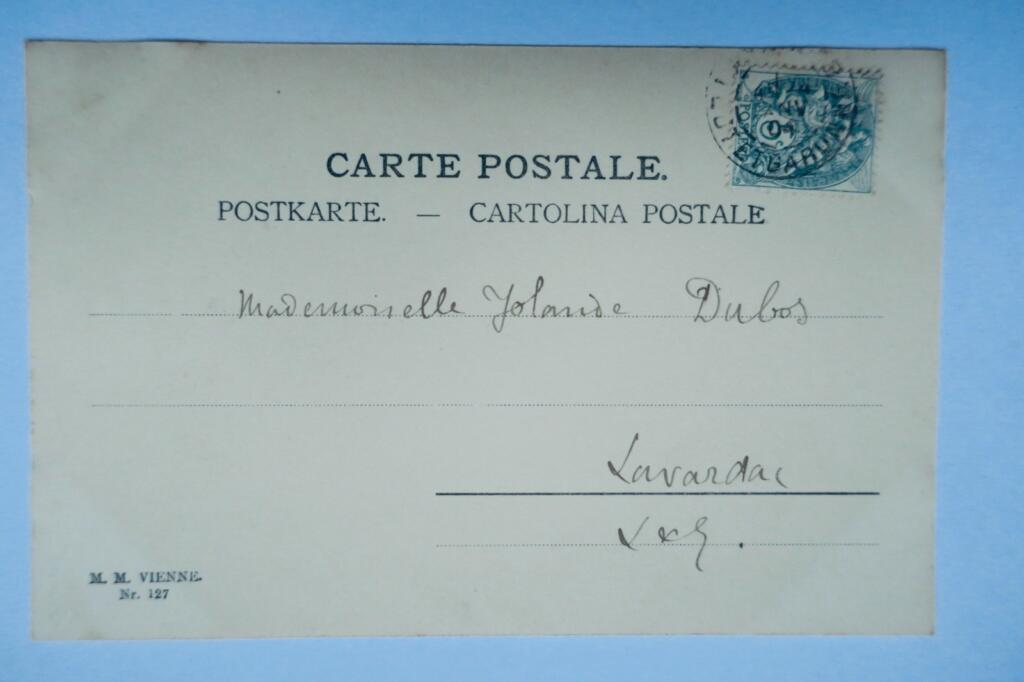 CARTE POSTALE.
POSTKARTE. — CARTOLINA POSTALE
Mademoiselle Yolande Dubos
Lavardac
L & G.
M. M. VIENNE.
Nr. 127
ET GARONNE